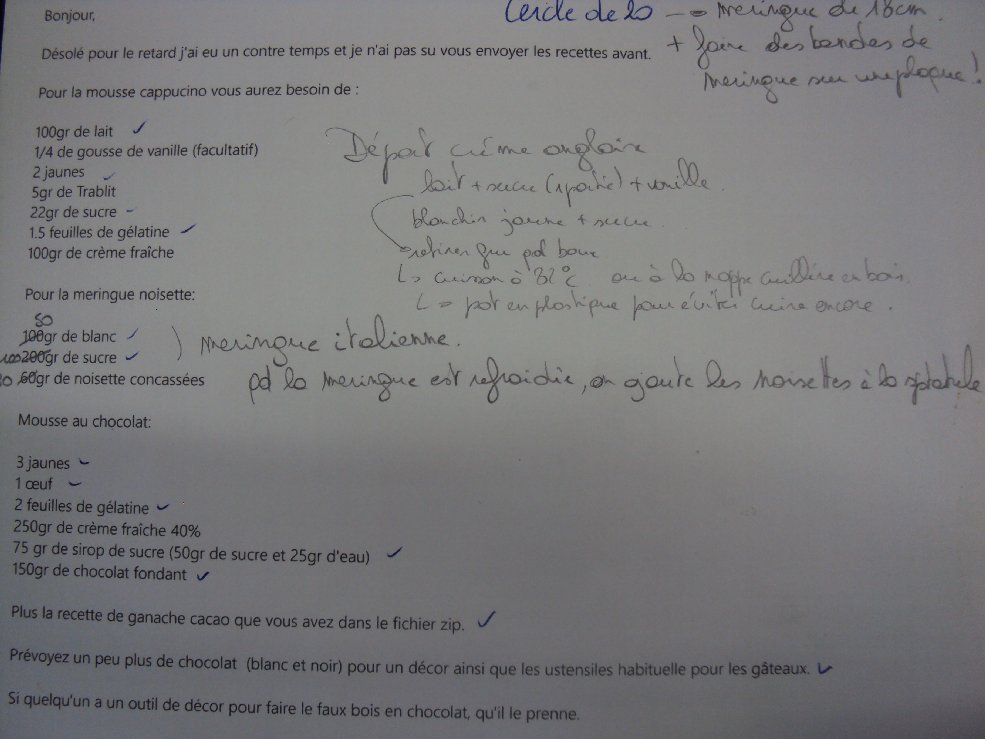 Bonjour,
Cercle de 20 → meringue de 18cm.
+ faire des bandes de
meringue sur une plaque!
Désolé pour le retard j'ai eu un contre temps et je n'ai pas su vous envoyer les recettes avant.
Pour la mousse cappucino vous aurez besoin de :
100gr de lait ✓
1/4 de gousse de vanille (facultatif)
2 jaunes ✓
5gr de Trablit
22gr de sucre -
1.5 feuilles de gélatine ✓
100gr de crème fraîche
Départ crème anglaise
lait + sucre (1 partie) + vanille
blanchir jaune + sucre.
retirer qd bout
↳ cuisson à 82°C ou à la nappe cuillère en bois.
↳ pot en plastique pour éviter cuire encore.
Pour la meringue noisette:
50
100gr de blanc ✓
100 200gr de sucre ✓
60gr de noisette concassées
) meringue italienne.
qd la meringue est refroidie, on ajoute les noisettes à la spatule
Mousse au chocolat:
3 jaunes ✓
1 œuf ✓
2 feuilles de gélatine ✓
250gr de crème fraîche 40%
75 gr de sirop de sucre (50gr de sucre et 25gr d'eau) ✓
150gr de chocolat fondant ✓
Plus la recette de ganache cacao que vous avez dans le fichier zip. ✓
Prévoyez un peu plus de chocolat (blanc et noir) pour un décor ainsi que les ustensiles habituelle pour les gâteaux. ✓
Si quelqu'un a un outil de décor pour faire le faux bois en chocolat, qu'il le prenne.